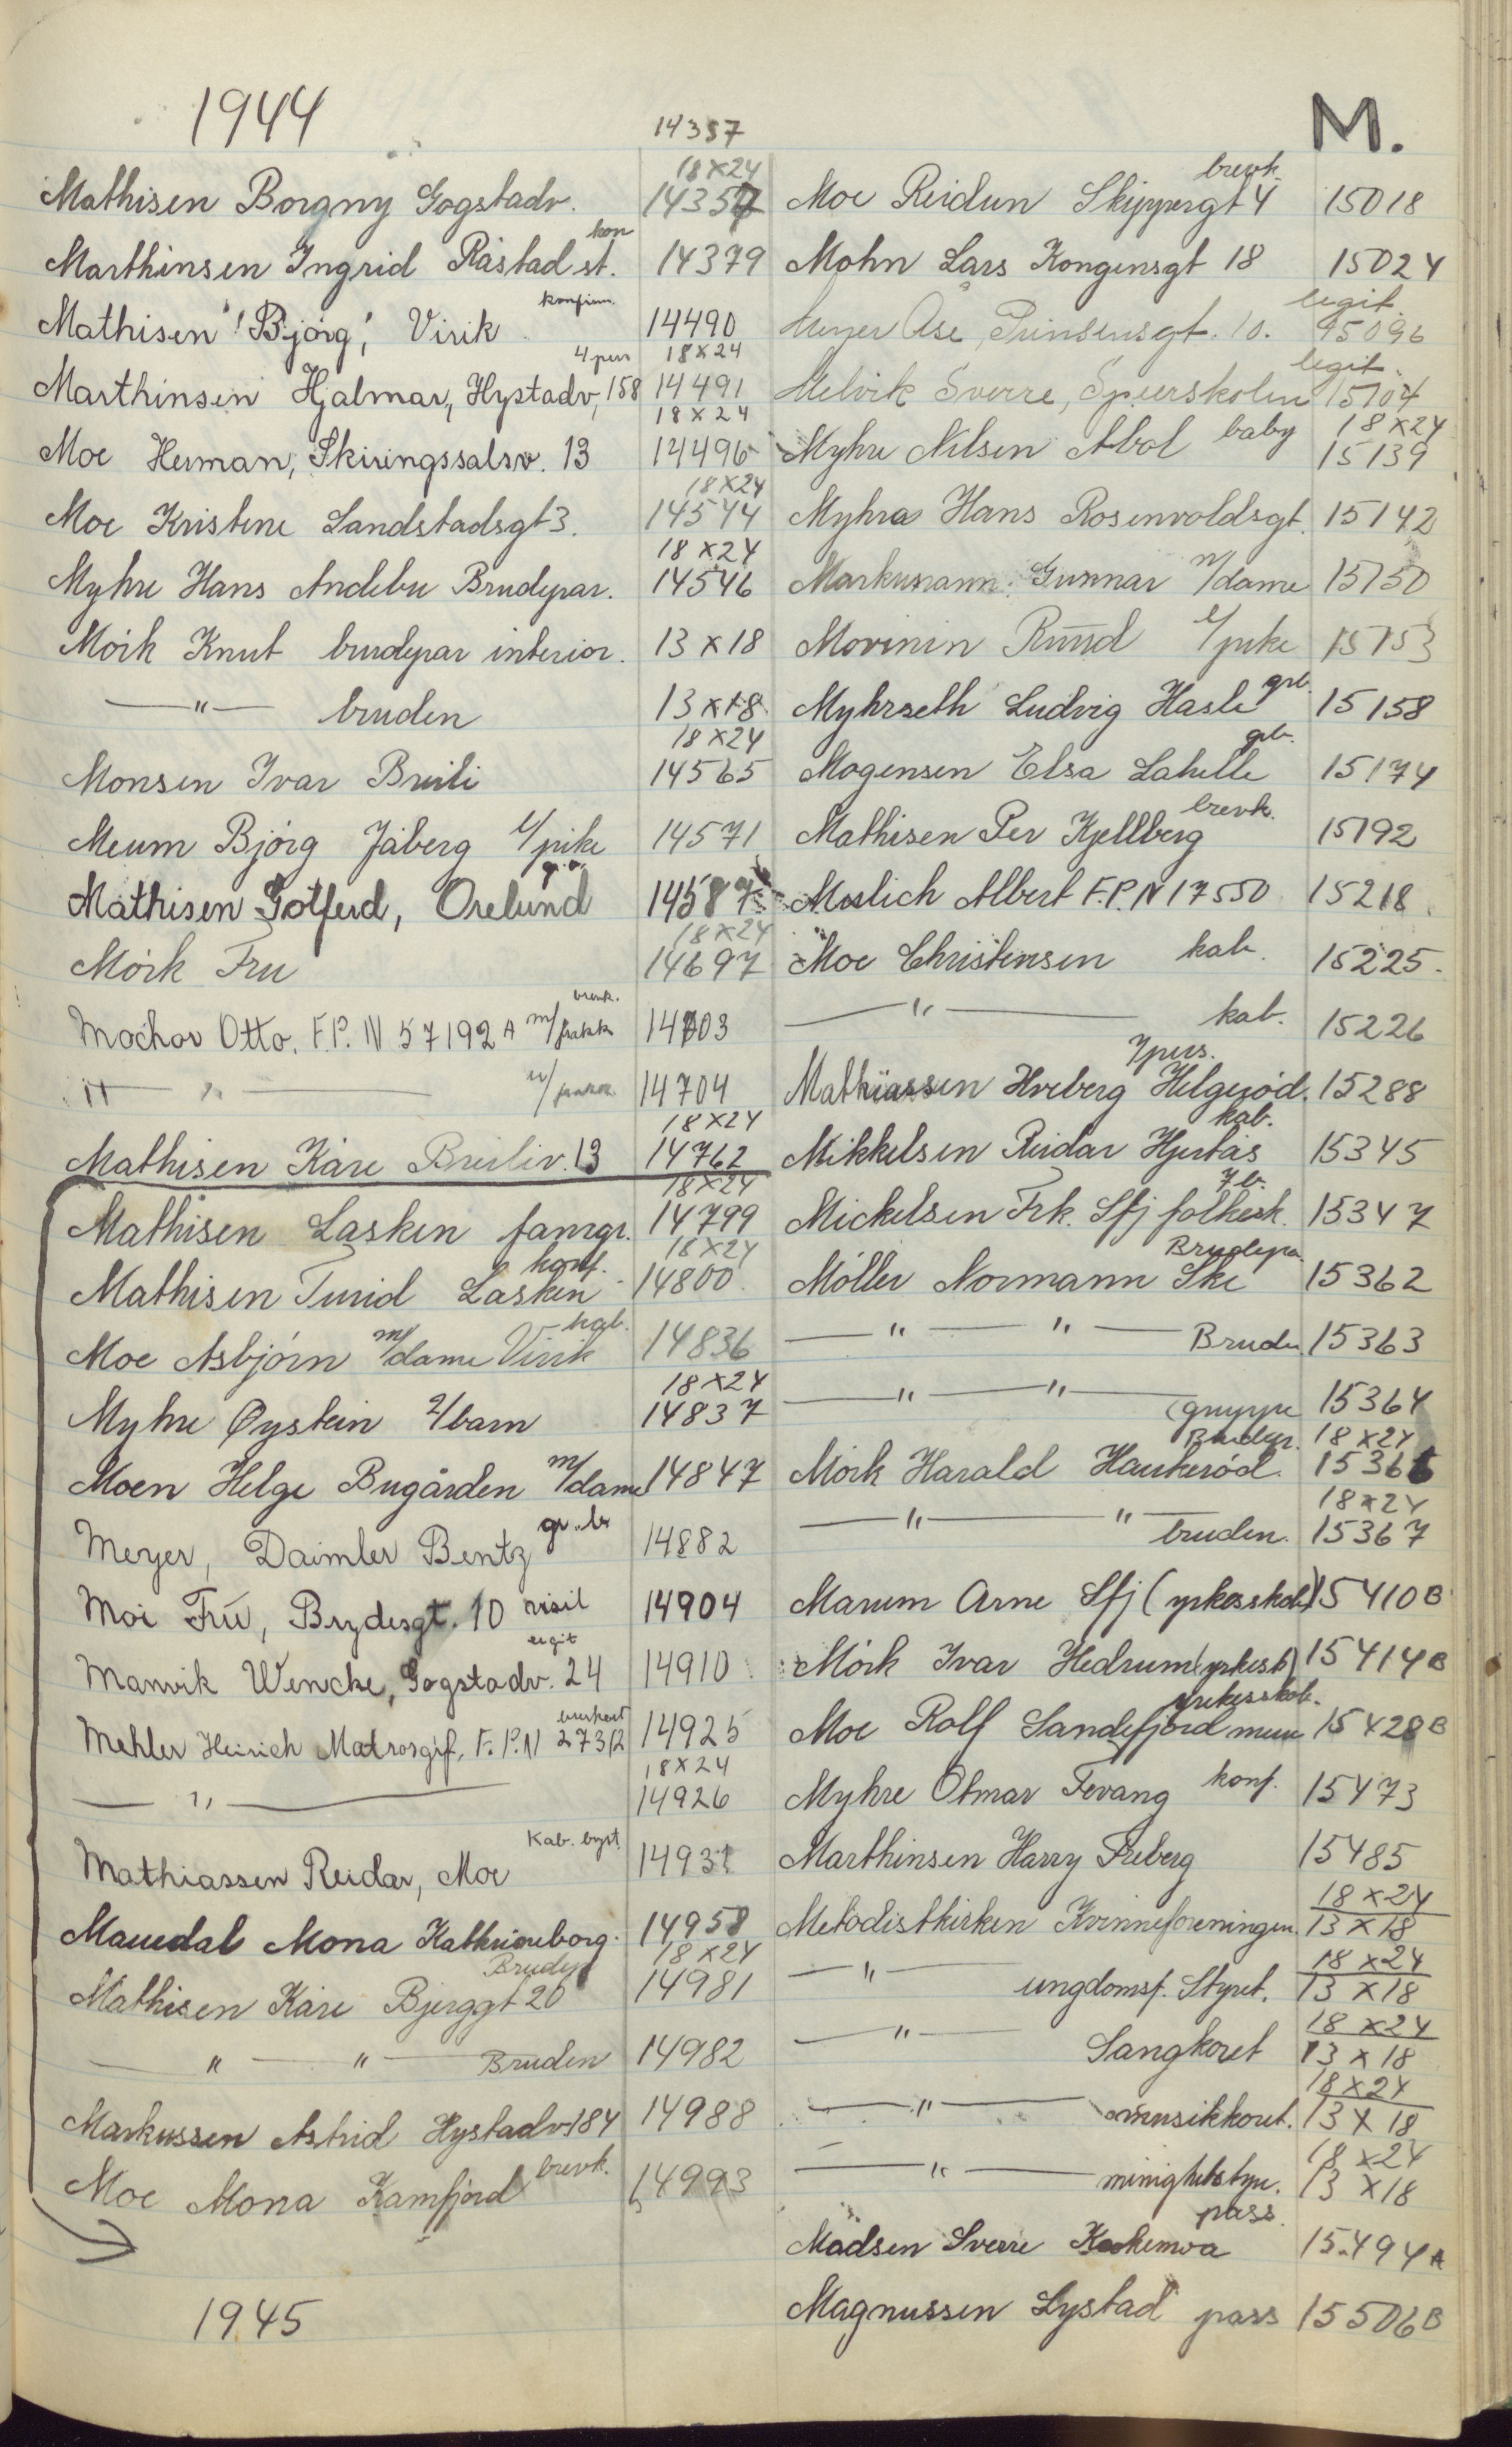 1944
M.
14357
18x24
Mathisen Borgny Gogstadv. 14357
kon
Marthinsen Ingrid Råstad st. 14379
konfirm.
Mathisen "Bjørg", Virik 14490
4 pers 18x24
Marthinsen Hjalmar, Hystadv, 158 14491
18x24
Moe Herman, Skiringssalsv. 13 14496
18x24
Moe Kristene Landstadsgt 3. 14544
18x24
Myhre Hans Andebu Brudepar. 14546
Mørk Knut brudepar interiør. 13x18
— " — bruden 13x18
18x24
Monsen Ivar Breili 14565
Meum Bjørg Jåberg 1/pike 14571
Mathisen Gotferd, Orelund 14587
18x24
Mørk Fru 14697
brevk.
Mochor Otto. F.P. N 57192 A m/frakk 14703
" — " — u/frakk 14704
18x24
Mathisen Kåre Breiliv. 13 14762
18x24
Mathisen Lasken famgr. 14799
konf. 18x24
Mathisen Turid Lasken 14800
kab.
Moe Asbjørn m/dame Virik 14836
18x24
Myhre Øystein 2/barn 14837
Moen Helge Bugården m/dame 14847
gr. br
Meyer, Daimler Bentz 14882
Moi Frü, Brydesgt. 10 visit 14904
legit
Manvik Wencke, Gogstadv. 24 14910
Mehler Heinrich Matrosgif, F.P.N 27312 14925
18x24
— " — 14926
Kab. byst.
Mathiassen Reidar, Moe 14931
Mauedal Mona Kathrineborg. 14958
Brudep 18x24
Mathisen Kåre Bjerggt 20 14981
— " — " — Bruden 14982
Markussen Astrid Hystadv 184 14988
brevk.
Moe Mona Kamfjord 14993
1945
brevk.
Moe Reidun Skippergt 4 15018
Mohn Lars Kongensgt 18 15024
legit
Meyer Åse, Prinsensgt. 10. 15096
legit
Melvik Sverre, Speerskolen 15104
18x24
Myhre Nilsen Abol baby 15139
Myhra Hans Rosenvoldsgt. 15142
Markusmann Gunnar m/dame 15150
Movinin Ruud 1/pike 15153
grb.
Myhrseth Ludvig Hasle 15158
grb.
Mogensen Elsa Lahelle 15174
brevk.
Mathisen Per Kjellberg 15192
Mislich Albert F.P. N 17550 15218
Moe Christensen kab. 15225.
— " — kab. 15226
7 pers.
Mathiassen Hveberg Helgerød. 15288
kab.
Mikkelsen Reidar Hjertås 15345
7 b.
Mickelsen Frk. Sfj folkesk. 15347
Brudepa.
Møller Normann Ske 15362
— " — " — Bruden 15363
— " — " — gruppe 15364
Brudepr. 18x24
Mørk Harald Haukerød. 15366
18x24
— " — " — bruden. 15367
Marum Arne Sfj (yrkesskole) 15410 B
Mørk Ivar Hedrum (yrkesk) 15414 B
yrkesskole.
Moe Rolf Sandefjord mur 15428 B
Myhre Otmar Fevang konf. 15473
Marthinsen Harry Freberg 15485
18x24
Metodistkirken Kvinneforeningen. 13x18
18x24
— " — ungdomsf. Styret. 13x18
18x24
— " — Sangkoret 13x18
18x24
— " — musikkoret. 13x18
18x24
— " — minighetstyr. 13x18
pass.
Madsen Sverre 15494 A
Magnussen Lystad pass 15506 B